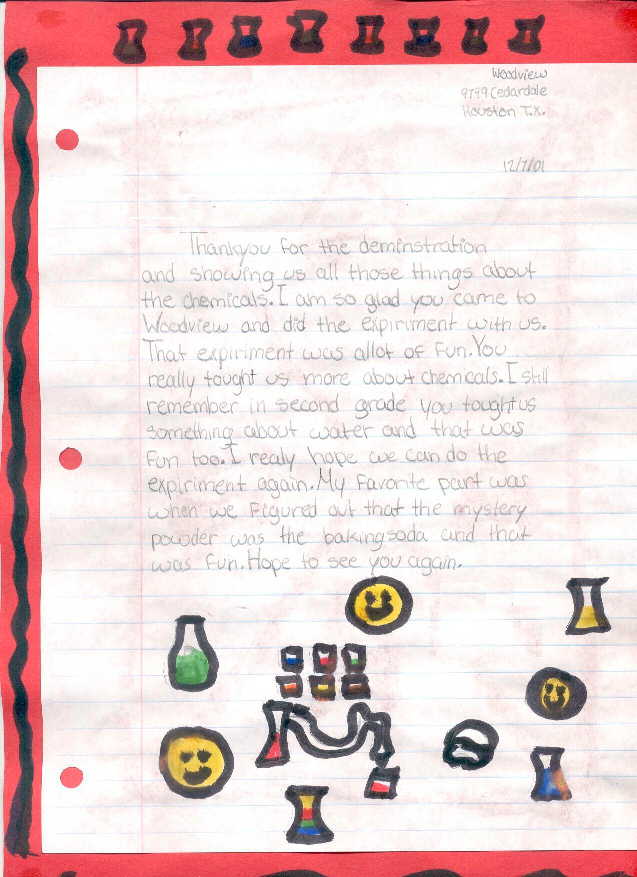 Woodview
9799 Cedardale
Houston T.X.
12/7/01
Thankyou for the deminstration
and showing us all those things about
the chemicals. I am so glad you came to
Woodview and did the expiriment with us.
That expiriment was allot of fun. You
really tought us more about chemicals. I still
remember in second grade you tought us
something about water and that was
fun too. I realy hope we can do the
expiriment again. My favorite part was
when we figured out that the mystery
powder was the bakingsoda and that
was fun. Hope to see you again.